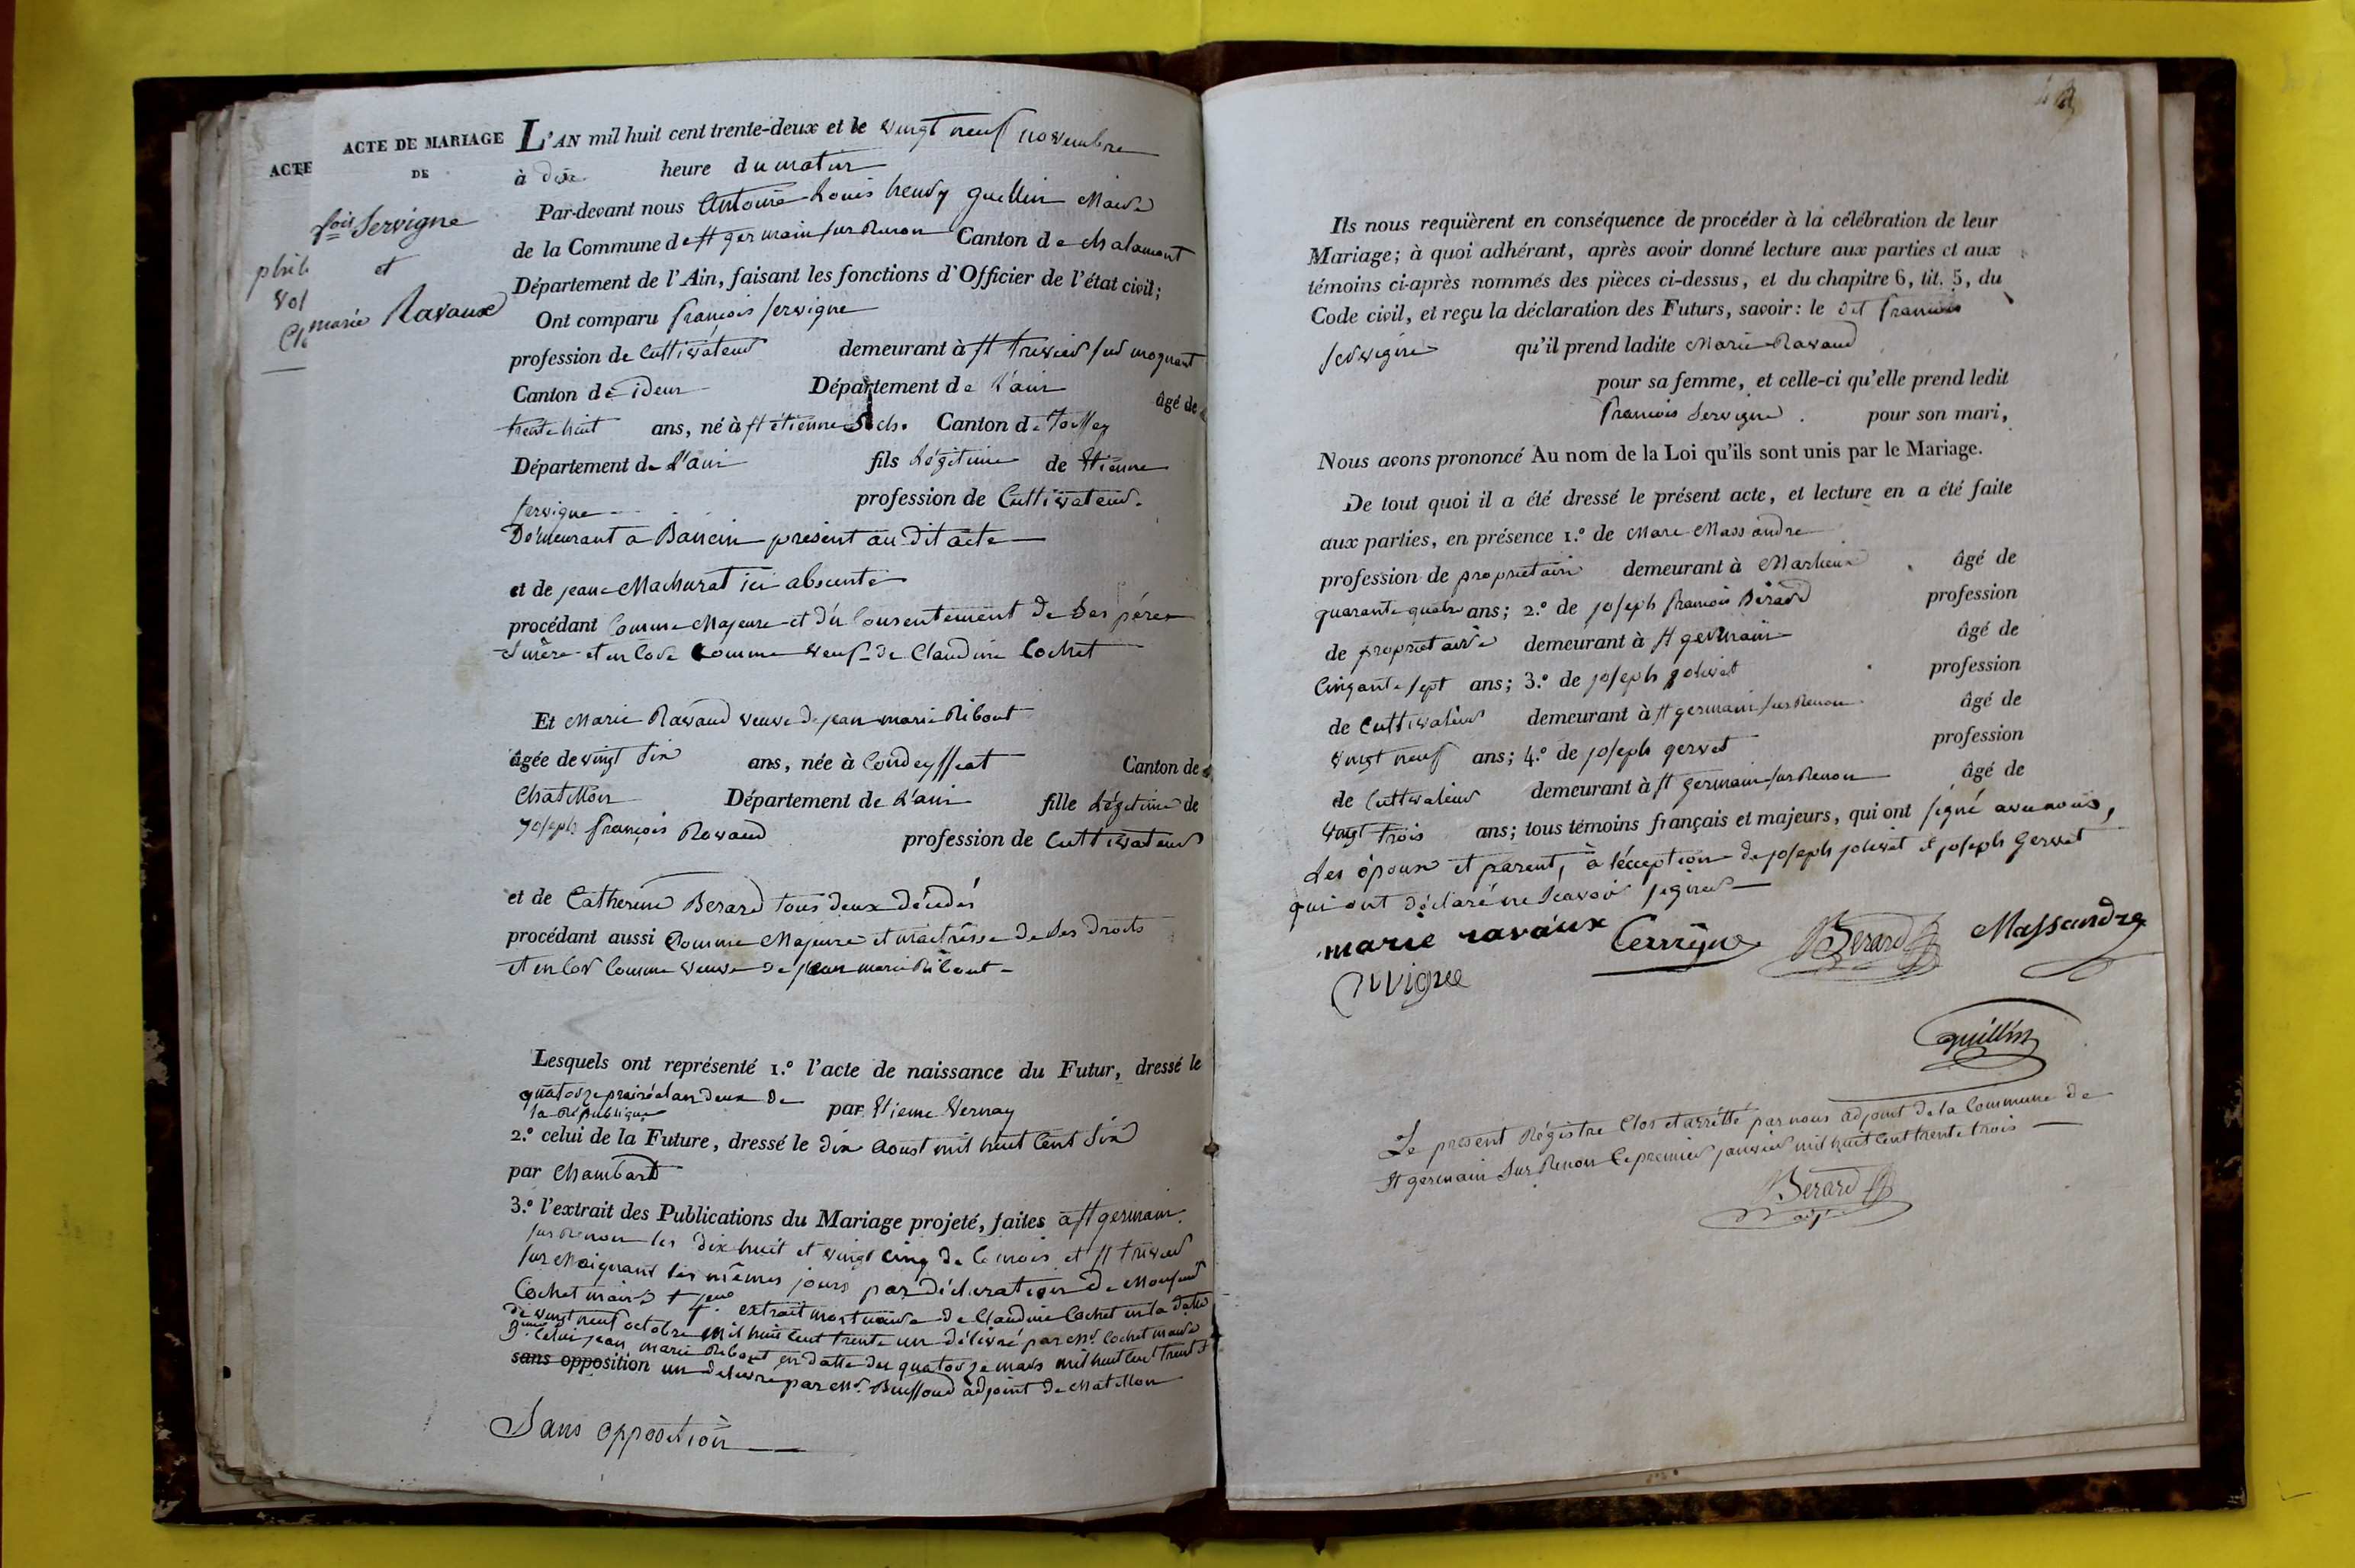 ACTE
phili
vol
ACTE DE MARIAGE
DE
fois Servigne
et
marie Ravaux
L'AN mil huit cent trente-deux et le vingt neuf novembre
à dix heure du matin
Par-devant nous Antoine Louis henry guillin Maire
de la Commune de st germain sur Renon Canton de chalamont
Département de l'Ain, faisant les fonctions d'Officier de l'état civil;
Ont comparu françois servigne
profession de Cultivateur demeurant à st trivier sur mognant
Canton de idem Département de l'ain âgé de
trente huit ans, né à st étienne s ch. Canton de toissey
Département de l'ain fils Légitime de Etienne
servigne profession de Cultivateur.
Demeurant a Banein présent au dit acte
et de jeane Machurat ici absente
procédant Comme Majeure et du Consentement de Ses pères
et mère et en Core Comme veuf de Claudine Cochet
Et Marie Ravaud veuve de jean marie Ribout
âgée de vingt six ans, née à Condeyssiat Canton de
Chatillon Département de L'ain fille Légitime de
joseph françois Ravaud profession de Cultivateur
et de Catherine Berard tous deux décédés
procédant aussi Comme Majeure et maitresse de Ses droits
et en Cor Comme veuve de jean marie Ribout
Lesquels ont représenté 1.º l'acte de naissance du Futur, dressé le
quatorze prairéal an deux de
la République par Etienne Vernay
2.º celui de la Future, dressé le dix Aoust mil huit Cent Six
par Chambard
3.º l'extrait des Publications du Mariage projeté, faites a st germain
sur Renon les dix huit et vingt cinq de Ce mois et st trivier
sur Moignant les mêmes jours par déclaration de Monsieur
Cochet maire + 4.eme extrait mortuaire de Claudine Cochet en la date
de vingt neuf octobre mil huit Cent trente un délivré par Mr. Cochet maire
5.eme Celui jean marie Ribout en datte du quatorze mars mil huit Cent trente
sans opposition un délivré par Mr. Buissoud adjoint de Chatillon
Sans opposition
Ils nous requièrent en conséquence de procéder à la célébration de leur
Mariage; à quoi adhérant, après avoir donné lecture aux parties et aux
témoins ci-après nommés des pièces ci-dessus, et du chapitre 6, tit. 5, du
Code civil, et reçu la déclaration des Futurs, savoir: le dit francois
servigne qu'il prend ladite Marie Ravaud
pour sa femme, et celle-ci qu'elle prend ledit
francois Servigne. pour son mari,
Nous avons prononcé Au nom de la Loi qu'ils sont unis par le Mariage.
De tout quoi il a été dressé le présent acte, et lecture en a été faite
aux parties, en présence 1.º de Marc Massandre
profession de proprietaire demeurant à Marlieux âgé de
quarante quatre ans; 2.º de joseph françois Bérard profession
de propriétaire demeurant à st germain âgé de
Cinqante sept ans; 3.º de joseph jolivet profession
de Cultivateur demeurant à st germain sur Renon âgé de
vingt neuf ans; 4.º de joseph gervet profession
de Cultivateur demeurant à st germain sur Renon âgé de
vingt trois ans; tous témoins français et majeurs, qui ont signé avec nous,
Les époux et parent, à léxception de joseph jolivet et joseph Gervet
qui ont déclaré ne Scavoir signer
marie ravaux Cervigne Berard Massandre
rvigne
guillin
Le present Régistre Clos et arrêtté par nous adjoint de la Commune de
st germain Sur Renon Ce premier janvier mil huit Cent trente trois
Berard